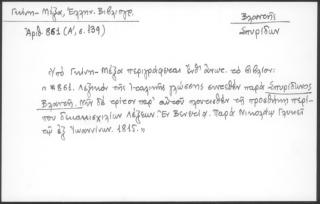 Γκίνη-Μέξα, Ἑλλην. Βιβλιογρ.
Ἀριθ. 861 (Α', σ. 139)
Βλαντῆς
Σπυρίδων
Ὑπὸ Γκίνη-Μέξα περιγράφεται τὸ βιβλίον:
« *861. Λεξικὸν τῆς Ἰταλικῆς γλώσσης συντεθὲν παρὰ Σπυρίδωνος
Βλαντῆ. Νῦν δὲ τρίτον παρ' αὐτοῦ πλουτισθὲν τῇ προσθήκῃ περί-
που δεκαπεντακισχιλίων λέξεων. Ἐν Βενετίᾳ. Παρὰ Νικολάῳ Γλυκεῖ
τῷ ἐξ Ἰωαννίνων. 1815. »